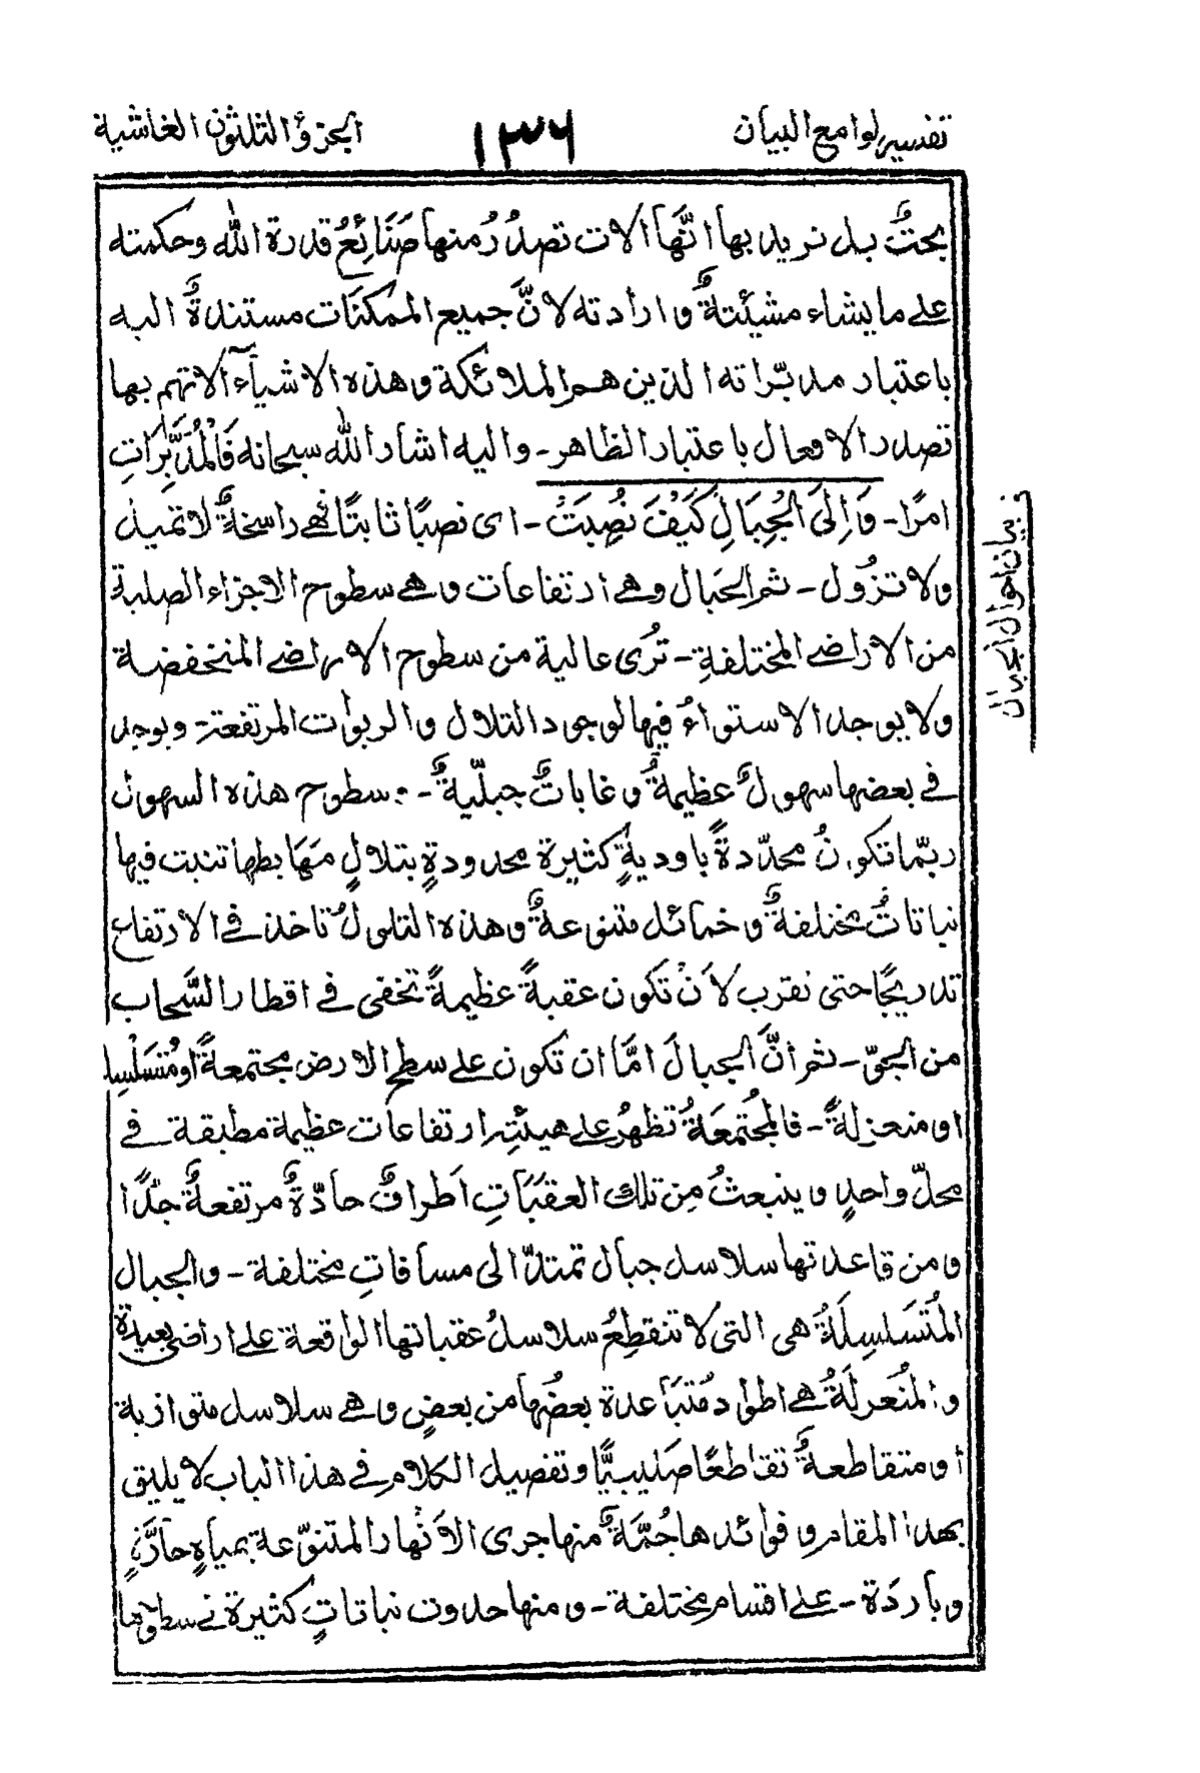 تفسير لوامع البيان
١٣٦
الجزؤ الثلثون الغاشية
بحتٌ بل نريد بها انَّها الات تصدُرُ منها صَنَائِعُ قدرة الله وحكمته
على ما يشاء مشيئتهٗ و ارادته لانَّ جميع الممكنَات مستندةٌ اليه
باعتبار مدبّراته الذين هم الملائكة وهذه الاشيآء آلاتهم بها
تصدر الافعال باعتبار الظاهر - واليه اشار الله سبحانه فَالْمُدَبِّرَاتِ
امرًا - وَاِلَى الْجِبَالِ كَيْفَ نُصِبَتْ - اى نصبًا ثابتًا فهى راسخةٌ لا تميل
ولا تزُول - ثم الجبال وهى ارتفاعات وهى سطوح الاجزاء الصلبة
من الاراضى المختلفةِ - تُرى عالية من سطوح الاراضى المنخفضة
ولا يوجد الاستواءُ فيها لوجود التلال والربوات المرتفعة - ويوجد
فى بعضها سهولٌ عظيمةٌ و غاباتٌ جبلّيةٌ - و سطوح هذه السهول
ربّما تكونُ محدّدةً باوديةٍ كثيرة محدودةٍ بتلالٍ مَهَابطها تنبت فيها
نباتاتٌ مختلفةٌ و خمائل متنوعةٌ وهذه التلولُ تاخذ فى الارتفاع
تدريجًا حتى تقرب لاَنْ تكون عقبةً عظيمةً تخفى فى اقطار السَّحاب
من الجوّ - ثم انَّ الجبالَ امَّا ان تكون على سطح الارض مجتمعةً او مُتَسَلْسِلة
او منعزلةً - فالمُجتمعَةُ تظهرُ على هيئة ارتفاعات عظيمة مطبقة فى
محلّ واحدٍ و ينبعثُ مِن تلك العقبَاتِ اَطرافٌ حادّةٌ مرتفعةٌ جدًّا
ومن قاعدتها سلاسل جبال تمتدّ الى مسافاتٍ مختلفة - والجبال
المُتَسَلسِلَةُ هى التى لا تنقطِعُ سلاسلُ عقباتها الواقعة على اراضى بعيدة
والمُنعزلَةُ هى اطوادٌ مُتبَاعدة بعضُها من بعضٍ وهى سلاسل متوازية
او متقاطعةٌ تقاطعًا صَليبيًّا و تفصيل الكلام فى هذا الباب لا يليق
بهذا المقام و فوائدها جُمَّةٌ منها جرى الاَنْهار المتنوّعة بمياهٍ حارّةٍ
وباردَة - على اقسام مختلفة - و منها حدوث نباتاتٍ كثيرة فى سطوحها
بيان احوال الجبال